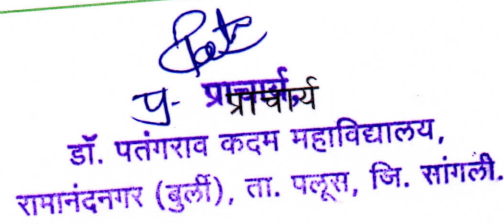 प्र- प्राचार्य
डॉ. पतंगराव कदम महाविद्यालय,
रामानंदनगर (बुर्ली), ता. पलूस, जि. सांगली.